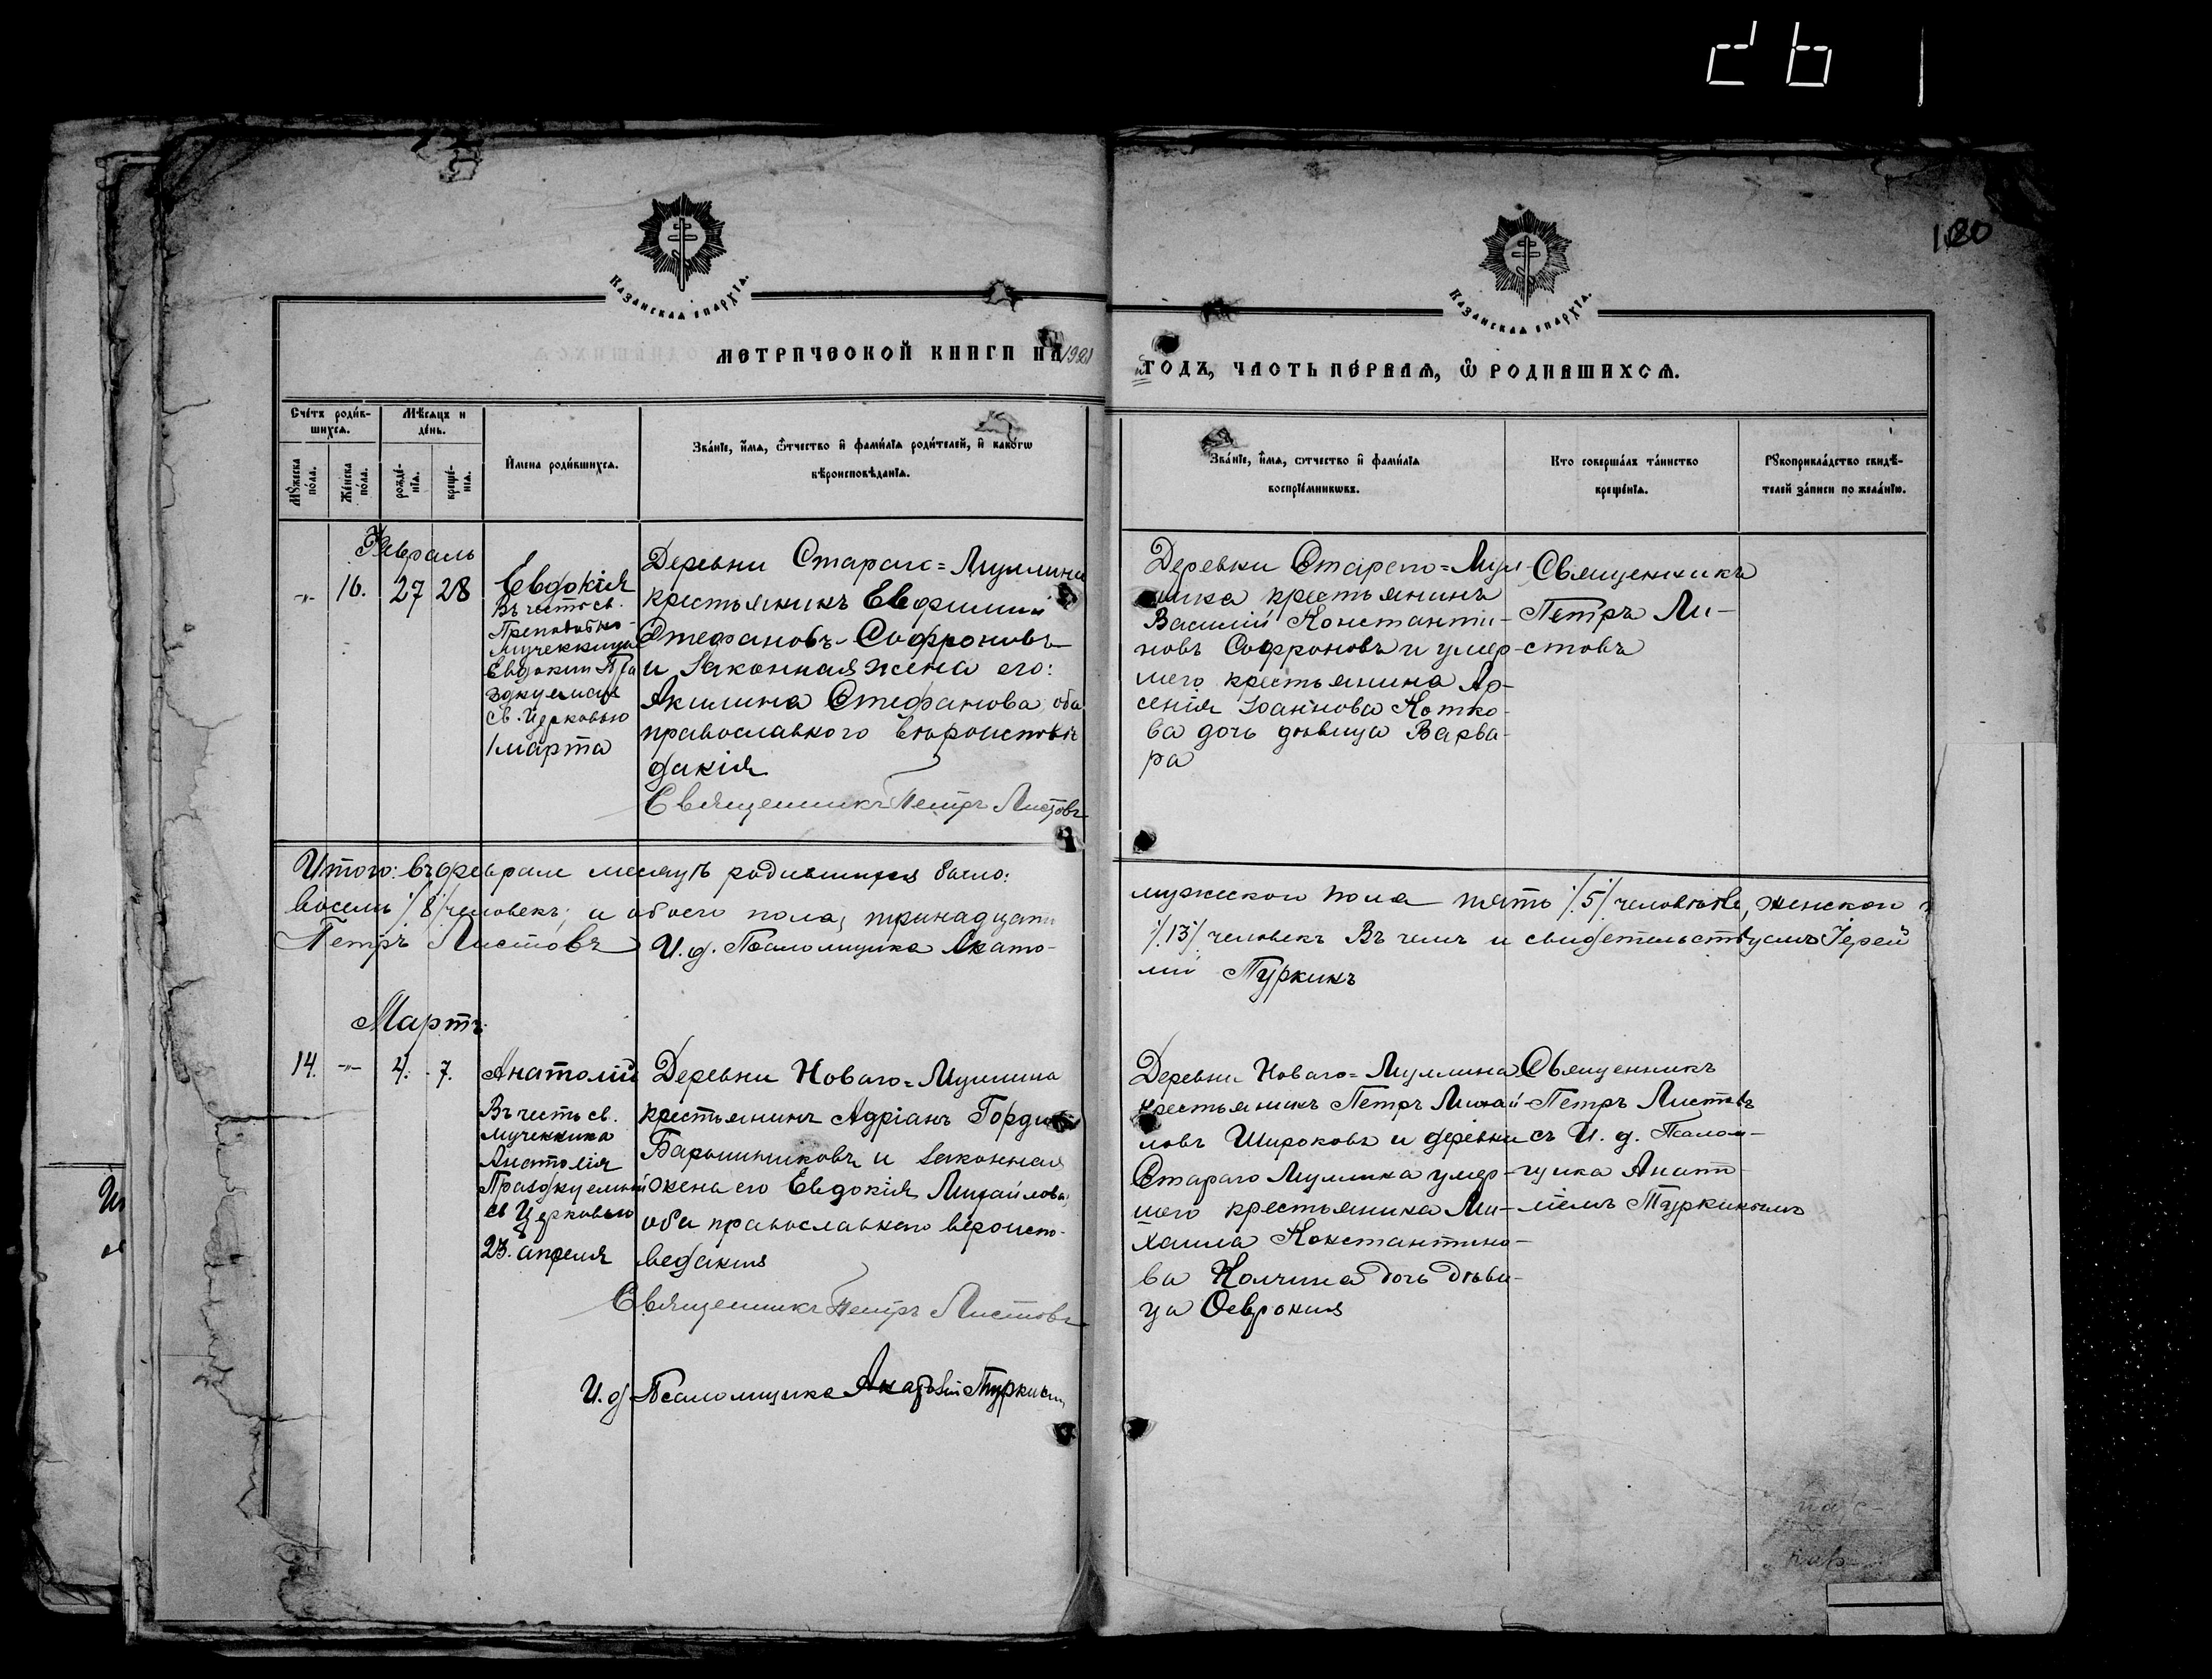 180
Казанская епархія.
Казанская епархія.
МЕТРИЧЕСКОЙ КНИГИ НА 1921
ГОДЪ, ЧАСТЬ ПЕРВАЯ, Ѡ РОДИВШИХСЯ.
Счетъ родив-
шихся.
Мѣсяцъ и
день.
Мꙋжеска
пола.
Женска
пола.
рожде-
нія.
креще-
нія.
Имена родившихся.
Званіе, имя, ѻтчество и фамилія родителей, и какогѡ
вѣроисповѣданія.
Званіе, имя, ѻтчество и фамилія
воспріемникѡвъ.
Кто совершалъ таинство
крещенія.
Рꙋкоприкладство свидѣ-
телей записи по желанію.
Февраль
-"- 16. 27 28
Евдокія
Въ честь св.
Преподобно-
мученицы
Евдокіи Пра
зднуемыя
св. Церковью
1 марта
Деревни Стараго=Муллина
крестьянинъ Евфимий
Стефановъ Софроновъ
и законная жена его:
Акилина Стефанова, оба
православного вѣроисповѣ
данія
Священникъ Петръ Листовъ
Деревни Стараго=Мул-
лина крестьянинъ
Василий Константи-
новъ Софроновъ и умер-
шего крестьянина Ар-
сенія Іоаннова Котко-
ва дочь дѣвица Варва-
ра
Священникъ
Петръ Ли-
стовъ
Итого: въ феврале месяцѣ родившихся было:
мужескои пола пять /5/ человѣкъ, женскои
восемь /8/ человекъ; и обоего пола, тринадцать
/13/ человекъ Въ чемъ и свидетельствуемъ Іерей
Петръ Листовъ И. д. Псаломщика Анато-
лій Туркинъ
Мартъ
14. -"- 4. 7.
Анатолій
Въ честь св.
мученика
Анатолія
Празднуемый
св Церковью
23. апреля
Деревни Новаго=Муллина
крестьянинъ Адріанъ
Барышниковъ и законная
жена его Евдокія Михайлова,
оба православного вероиспо-
ведания
Священникъ Петръ Листовъ
И. д Псаломщика Анатолій Туркинъ
Деревни Новаго=Муллина
крестьянинъ Петръ Михай-
ловъ Широковъ и деревни
Стараго Муллина умер-
шего крестьянина Ми-
хаила Константино-
ва дочь дѣви-
ца Феврония
Священникъ
Петръ Листовъ
съ И. д. Псалом-
щика Анато-
ліемъ Туркинымъ